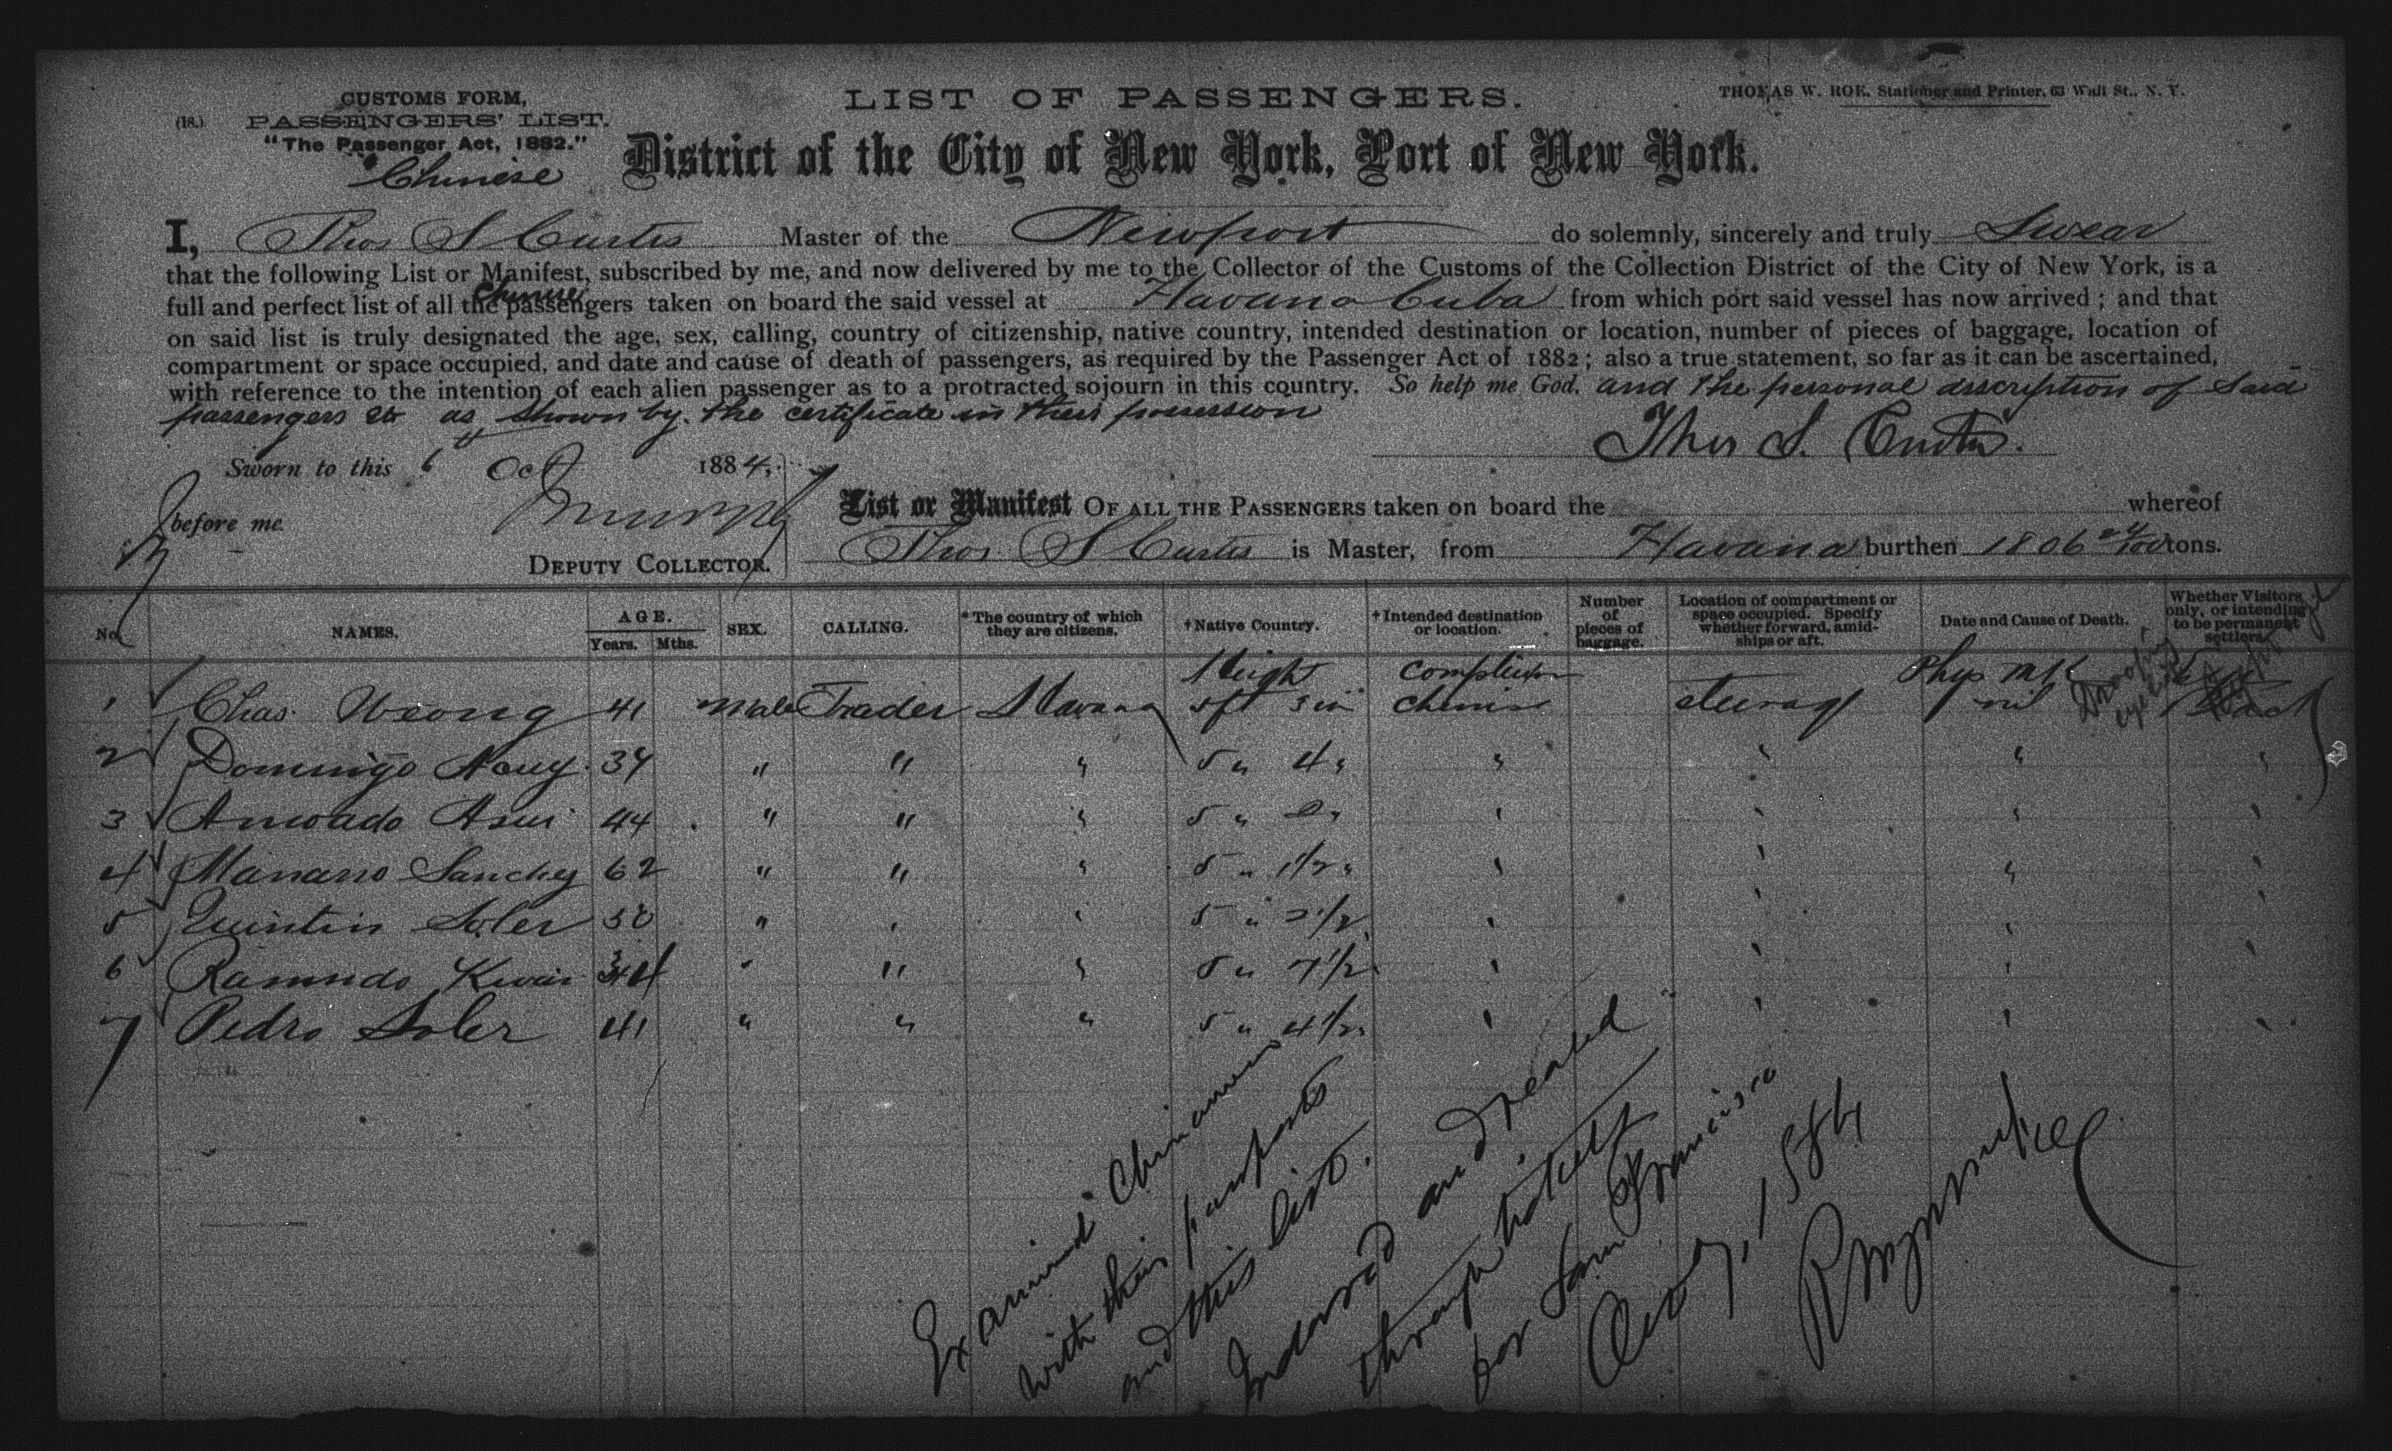 CUSTOMS FORM,
(18.) PASSENGERS' LIST.
"The Passenger Act, 1882."
Chinese
LIST OF PASSENGERS.
THOMAS W. ROE, Stationer and Printer, 63 Wall St., N. Y.
District of the City of New York, Port of New York.
I, Thos S Curtis Master of the Newport do solemnly, sincerely and truly Swear
that the following List or Manifest, subscribed by me, and now delivered by me to the Collector of the Customs of the Collection District of the City of New York, is a
full and perfect list of all the Chinese passengers taken on board the said vessel at Havana Cuba from which port said vessel has now arrived; and that
on said list is truly designated the age, sex, calling, country of citizenship, native country, intended destination or location, number of pieces of baggage, location of
compartment or space occupied, and date and cause of death of passengers, as required by the Passenger Act of 1882; also a true statement, so far as it can be ascertained,
with reference to the intention of each alien passenger as to a protracted sojourn in this country. So help me God. and the personal description of said
passengers &c as shown by the certificate in their possession
Thos S. Curtis.
Sworn to this 6th Oct 1884,
before me
DEPUTY COLLECTOR.
List or Manifest OF ALL THE PASSENGERS taken on board the whereof
Thos S Curtis is Master, from Havana burthen 1806 24/100 tons.
No. NAMES. AGE. Years. Mths. SEX. CALLING. *The country of which they are citizens. †Native Country. †Intended destination or location. Number of pieces of baggage. Location of compartment or space occupied. Specify whether forward, amidships or aft. Date and Cause of Death. Whether Visitors only, or intending to be permanent settlers.
Height Complexion Phys mk
1 Chas. Weong 41 Male Trader Havana 5 ft 3 in chinese steerage nil
Drooping eyelid
2 Domingo 34 " " " 5 " 4 " " " " "
3 Asui 44 " " " 5 " 2 " " " " "
4 Mariano Sanchez 62 " " " 5 " 1 1/2 " " " " "
5 Quintin Soler 38 " " " 5 " 2 1/2 " " " "
6 Ramundo 34 " " " 5 " 7 1/2 " " " "
7 Pedro Soler 41 " " " 5 " 4 1/2 " " " " "
Examined Chinamen
with their passports
and this list.
Indorsed and sealed
through tickets
for San Francisco
Oct 7, 1884